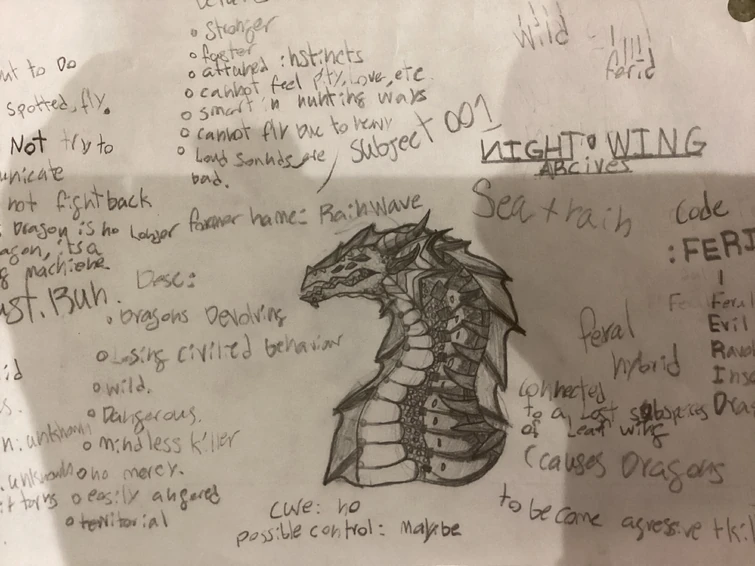 Stronger
faster
attuned instincts
cannot feel pity, love, etc.
smart in hunting ways
cannot fly due to heavy
Loud sounds are
bad.
Subject 001
to Do
spotted, fly.
Not try to
not fight back
Dragon is no longer
its a
machiene.
Run.
unknown
unknown
former name: RainWave
Desc:
Dragons Devolving
Losing civilied behavior
wild.
Dangerous.
mindless killer
no mercy.
easily angered
territorial
cure: no
possible control: maybe
Wild
ferid
NIGHT•WING
ARCives
Sea + rain
Code
:FERI
Evil
feral
hybrid
connected
to a Lost subspecies
of Leaf wing
(causes Dragons
to become agressive +